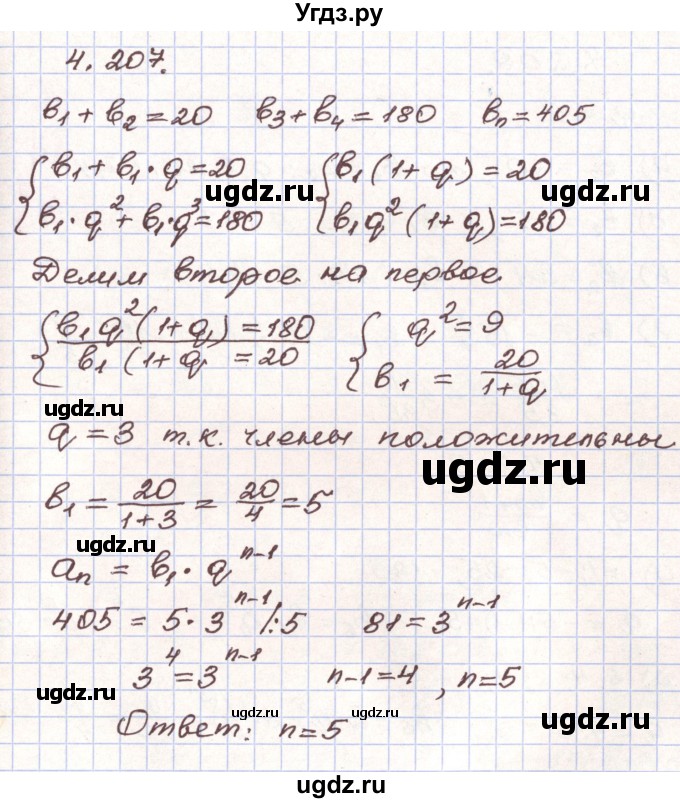 Угдз.ру
4. 207.
b₁ + b₂ = 20   b₃ + b₄ = 180   bₙ = 405
{ b₁ + b₁ · q = 20   { b₁ (1 + q) = 20
ugdz.ru
b₁ · q² + b₁ · q³ = 180   b₁q² (1 + q) = 180
ugdz.ru
Делим второе на первое
{ b₁ q² (1 + q) = 180   { q² = 9
b₁ (1 + q = 20   b₁ = 20/(1 + q)
ugdz.ru
q = 3 т.к. члены положительны
ugdz.ru
b₁ = 20/(1 + 3) = 20/4 = 5
ugdz.ru
aₙ = b₁ · qⁿ⁻¹
405 = 5 · 3ⁿ⁻¹ /:5   81 = 3ⁿ⁻¹
3⁴ = 3ⁿ⁻¹   n-1 = 4 , n = 5
ugdz.ru
ugdz.ru ugdz.ru
Ответ: n = 5
ugdz.ru
ugdz.ru